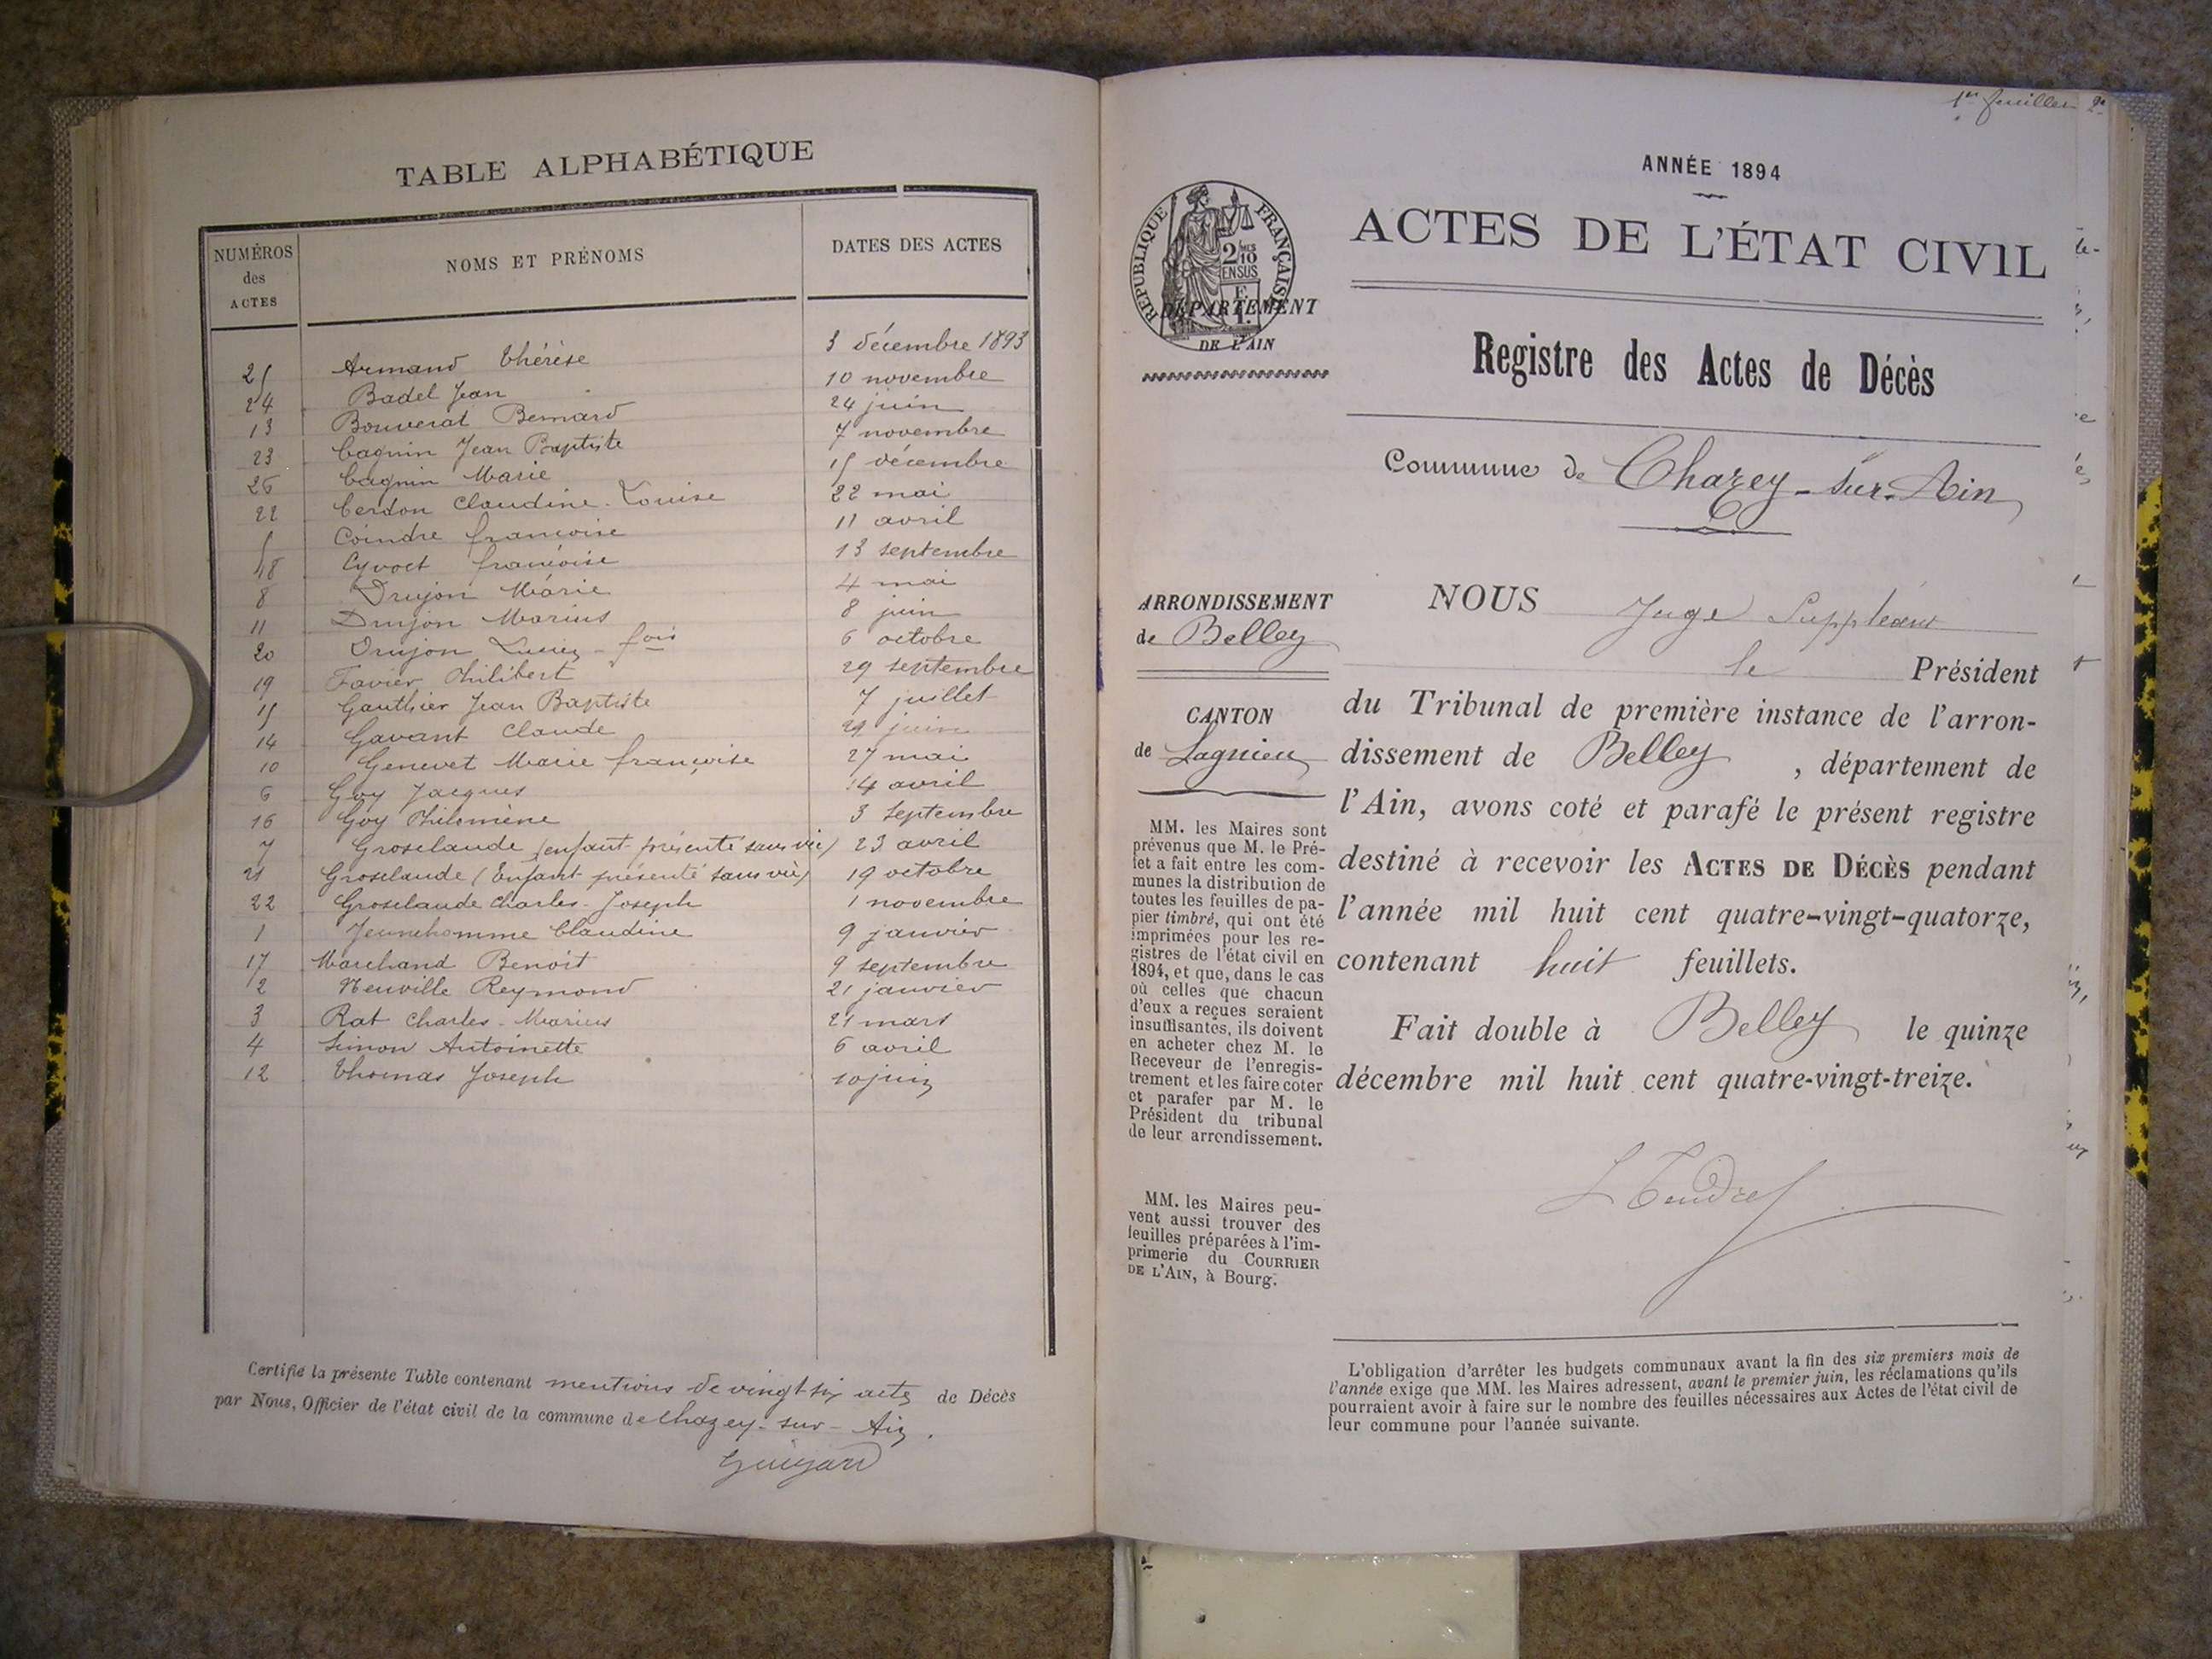 TABLE ALPHABÉTIQUE
NUMÉROS des ACTES NOMS ET PRÉNOMS DATES DES ACTES
25 Armand Thérèse 3 décembre 1893
24 Badel Jean 10 novembre
13 Bouverat Bernard 24 juin
23 Cagnin Jean Baptiste 7 novembre
26 Cagnin Marie 15 décembre
22 Cerdon Claudine-Louise 22 mai
5 Coindre françoise 11 avril
18 Cyvoct françoise 13 septembre
8 Drujon Marie 4 mai
11 Drujon Marius 8 juin
20 Drujon fois 6 octobre
19 Favier Philibert 29 septembre
15 Gauthier Jean Baptiste 7 juillet
14 Gavant Claude 29 juin
10 Genevet Marie françoise 27 mai
6 Goy Jacques 14 avril
16 Goy Philomène 3 septembre
7 Groselaude (enfant présenté sans vie) 23 avril
21 Groselaude (Enfant présenté sans vie) 19 octobre
22 Groselaude Charles-Joseph 1 novembre
1 Jeunehomme Claudine 9 janvier
17 Marchand Benoit 9 septembre
2 Neuville Reymond 21 janvier
3 Rat Charles-Marius 21 mars
4 Simon Antoinette 6 avril
12 Thomas Joseph 10 juin
Certifié la présente Table contenant mentions de vingt six actes de Décès
par Nous, Officier de l'état civil de la commune de Chazey-sur-Ain.
Guigard
1er feuillet
ANNÉE 1894
ACTES DE L'ÉTAT CIVIL
RÉPUBLIQUE FRANÇAISE
2 MES
10
EN SUS
DÉPARTEMENT
DE L'AIN
Registre des Actes de Décès
Commune de Chazey-sur-Ain
ARRONDISSEMENT
de Belley
CANTON
de Lagnieu
MM. les Maires sont
prévenus que M. le Pré-
fet a fait entre les com-
munes la distribution de
toutes les feuilles de pa-
pier timbré, qui ont été
imprimées pour les re-
gistres de l'état civil en
1894, et que, dans le cas
où celles que chacun
d'eux a reçues seraient
insuffisantes, ils doivent
en acheter chez M. le
Receveur de l'enregis-
trement et les faire coter
et parafer par M. le
Président du tribunal
de leur arrondissement.
MM. les Maires peu-
vent aussi trouver des
feuilles préparées à l'im-
primerie du COURRIER
DE L'AIN, à Bourg.
NOUS Juge Suppléant
le Président
du Tribunal de première instance de l'arron-
dissement de Belley, département de
l'Ain, avons coté et parafé le présent registre
destiné à recevoir les ACTES DE DÉCÈS pendant
l'année mil huit cent quatre-vingt-quatorze,
contenant huit feuillets.
Fait double à Belley le quinze
décembre mil huit cent quatre-vingt-treize.
L'obligation d'arrêter les budgets communaux avant la fin des six premiers mois de
l'année exige que MM. les Maires adressent, avant le premier juin, les réclamations qu'ils
pourraient avoir à faire sur le nombre des feuilles nécessaires aux Actes de l'état civil de
leur commune pour l'année suivante.